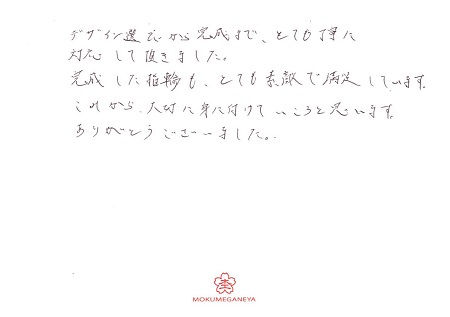 デザイン選びから完成まで、とても丁寧に
対応して頂きました。
完成した指輪も、とても素敵で満足しています。
これから、大切に身に付けていこうと思います。
ありがとうございました。
杢
MOKUMEGANEYA